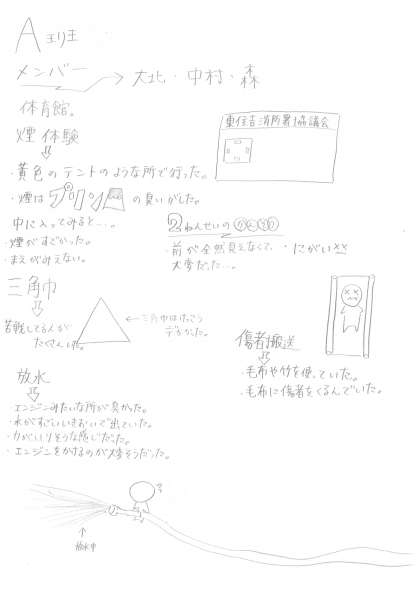 A 班
メンバー → 大北・中村・森
体育館。
煙体験
東住吉消防署協議会
・黄色のテントのような所で行った。
・煙はプリンの臭いがした。
中に入ってみると…。
・煙がすごかった。
・まえがみえない。
2ねんせいのかんそう
・前が全然見えなくて、大変だった…。
・にがい××
三角巾
苦戦してる人がたくさんいた。
←三角巾はけっこうデかかった。
傷者搬送
・毛布や竹を使っていた。
・毛布に傷者をくるんでいた。
放水
・エンジンみたいな所が臭かった。
・水がすごいいきおいで出ていた。
・力がいりそうな感じだった。
・エンジンをかけるのが大変そうだった。
↑
放水中